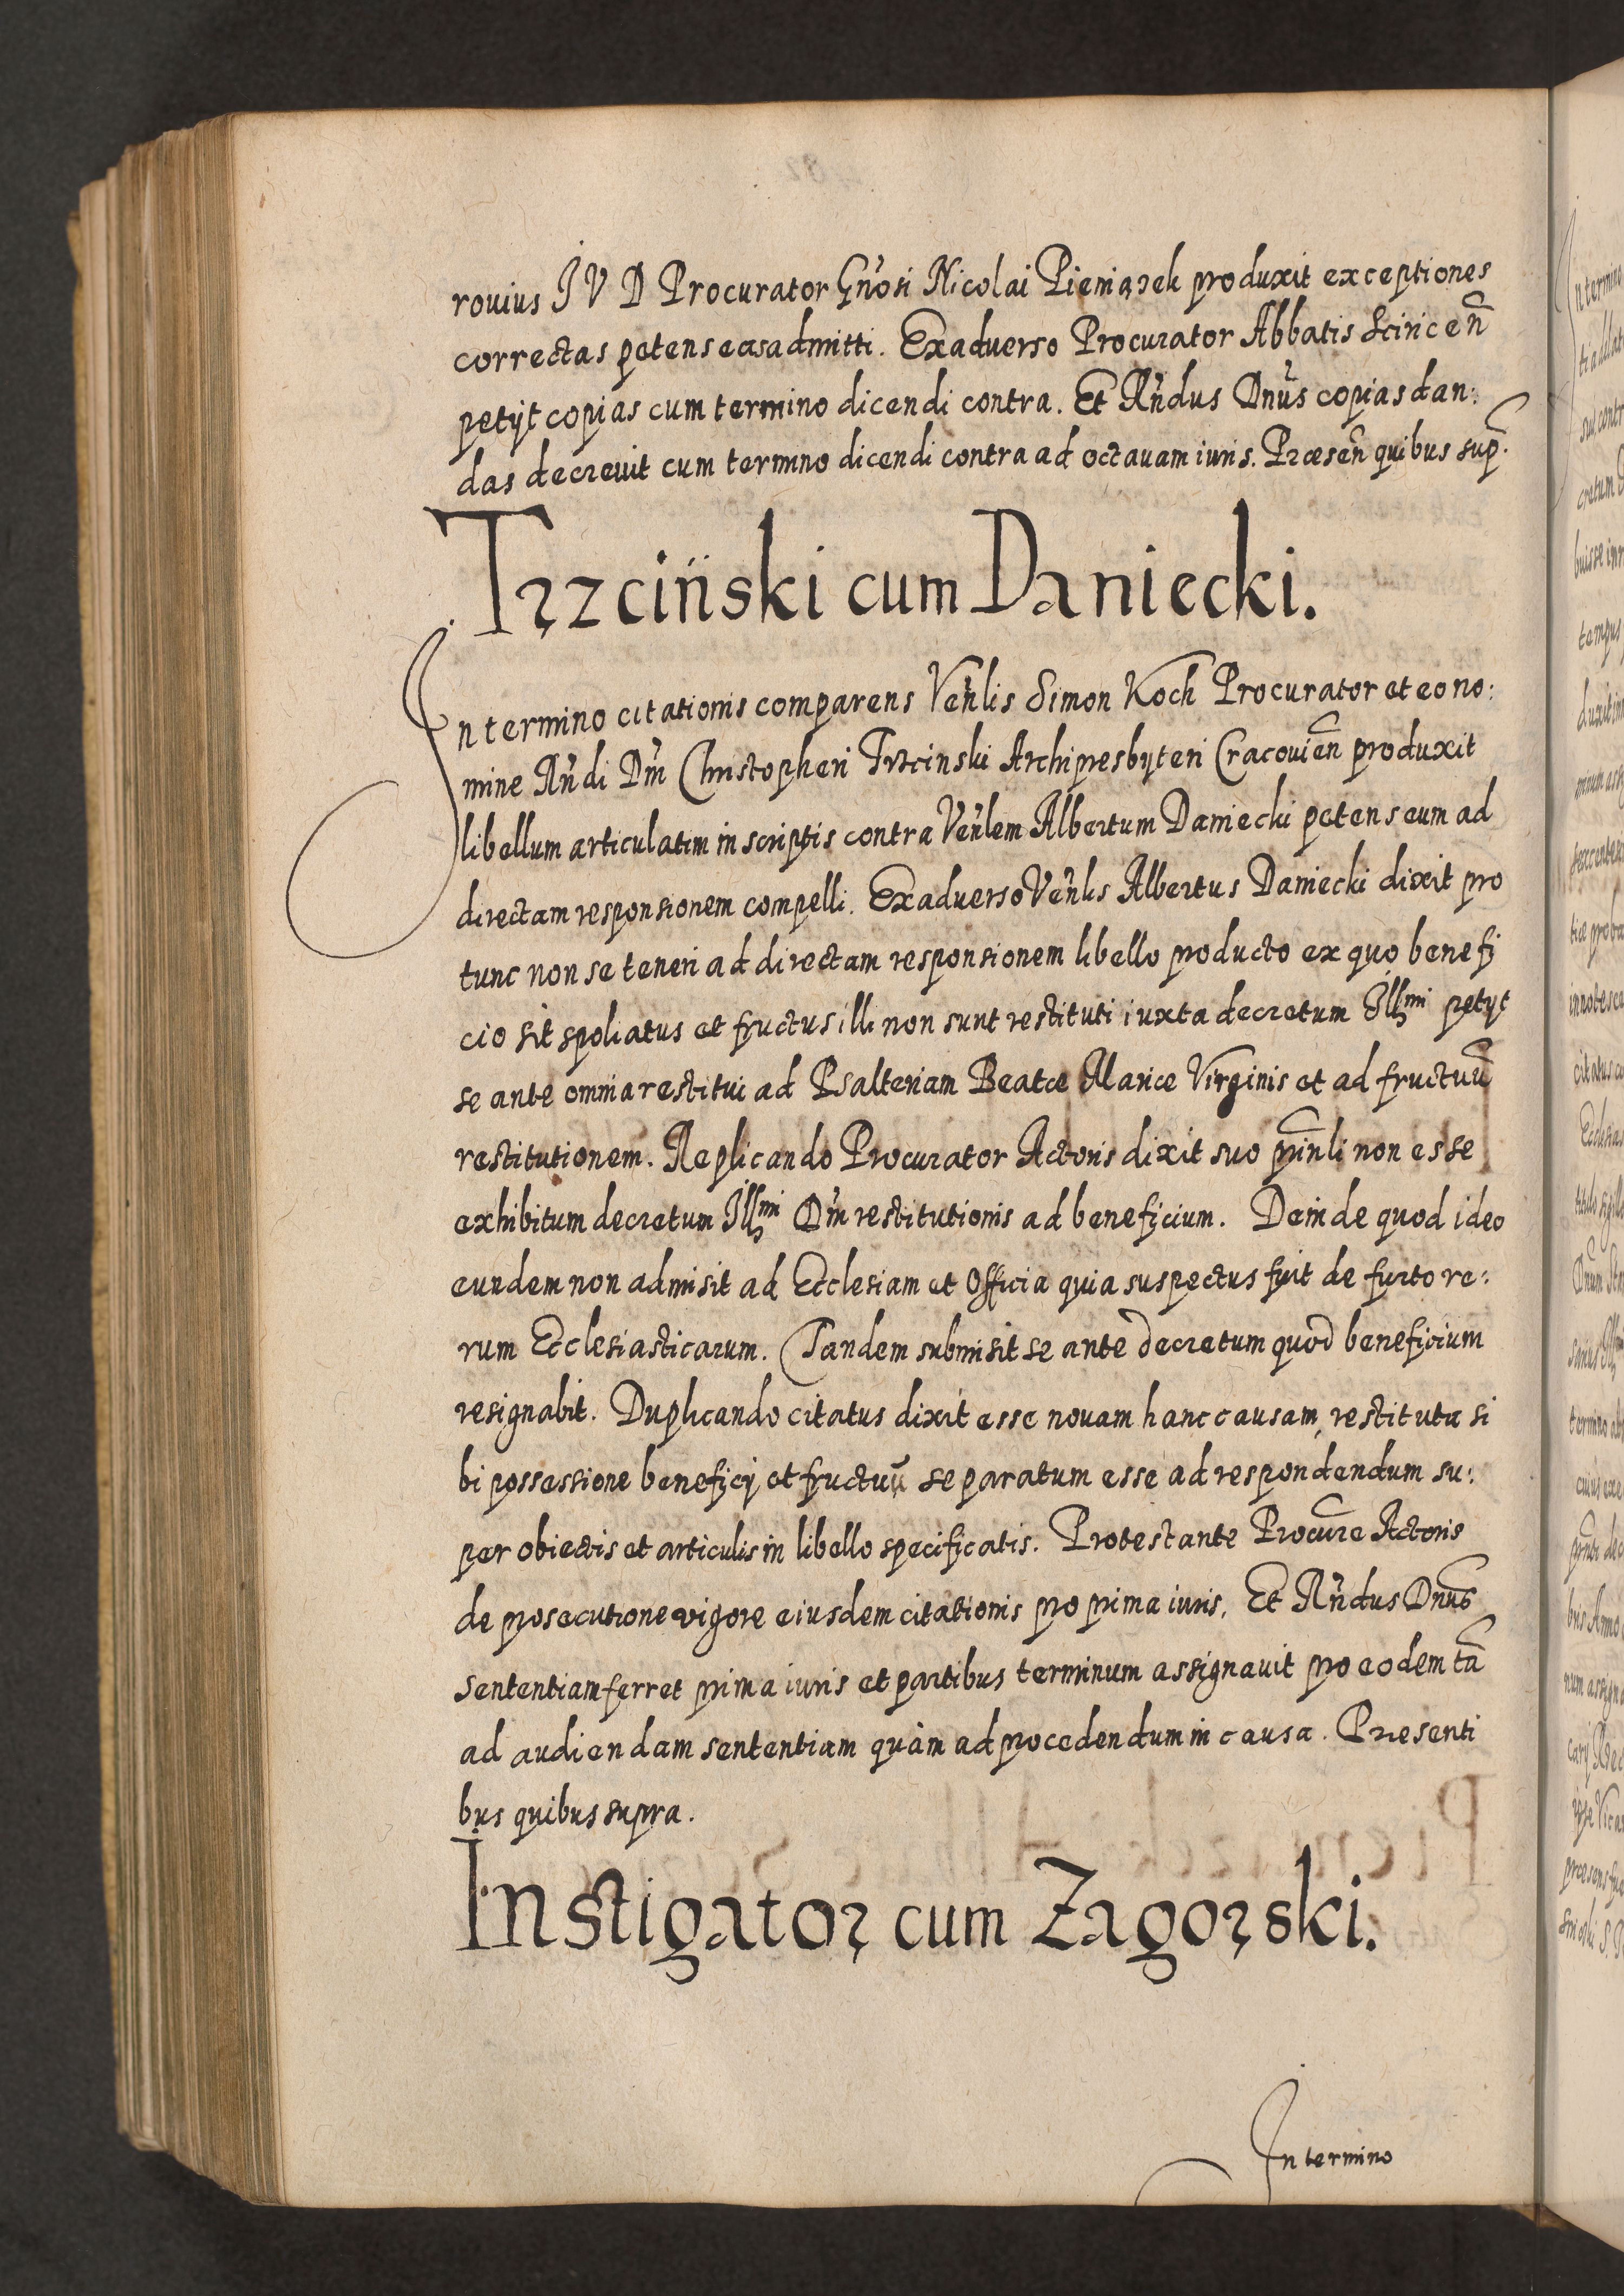 rouius J V D Procurator Gnosi Nicolai Pieniązek produxit exceptiones
correctas petens easadmitti. Exaduerso Procurator Abbatis Sciricen
petijt copias cum termino dicendi contra. Et Rndus Dnus copias dan:
das decreuit cum termino dicendi contra ad octauam iuris. Præsen quibus sup.
Trzciński cum Daniecki.
In termino citationis comparens Venlis Simon Koch Procurator et eo no:
mine Rndi Dni Christopheri Trzcinski Archipresbyteri Cracouien produxit
libellum articulatim in scriptis contra Venlem Albertum Daniecki petens eum ad
directam responsionem compelli. Exaduerso Venlis Albertus Daniecki dixit pro
tunc non se teneri ad directam responsionem libello producto ex quo benefi
cio sit spoliatus et fructus illi non sunt restituti iuxta decretum Illmi petijt
se ante omnia restitui ad Psalteriam Beatæ Mariæ Virginis et ad fructuū
restitutionem. Replicando Procurator Actoris dixit suo prinli non esse
exhibitum decretum Illmi Dni restitutionis ad beneficium. Deinde quod ideo
eundem non admisit ad Ecclesiam et Officia quia suspectus fuit de furto re:
rum Ecclesiasticarum. Tandem submisit se ante decretum quod beneficium
resignabit. Duplicando citatus dixit esse nouam hanc causam, restituta si
bi possessione beneficij et fructuū se paratum esse ad respondendum su:
per obiectis et articulis in libello specificatis. Protestante Procure Actoris
de prosecutione vigore eiusdem citationis pro prima iuris. Et Rndus Dnus
sententiam ferret prima iuris et partibus terminum assignauit pro eodem tā
ad audiendam sententiam quàm ad procedendum in causa. Presenti
bus quibus supra.
Instigator cum Zagorski.
In termino